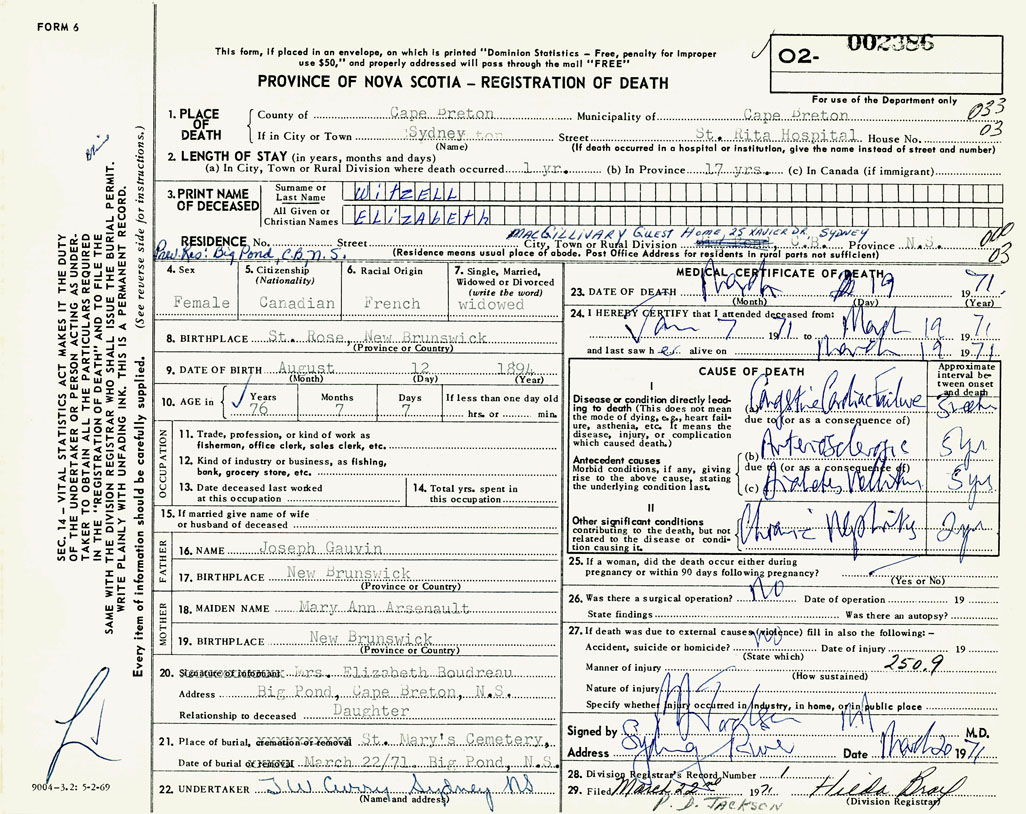 FORM 6
This form, if placed in an envelope, on which is printed "Dominion Statistics – Free, penalty for improper
use $50," and properly addressed will pass through the mail "FREE"
PROVINCE OF NOVA SCOTIA – REGISTRATION OF DEATH
O2- 002386
For use of the Department only
033
03
1. PLACE OF DEATH
County of Cape Breton Municipality of Cape Breton
If in City or Town Sydney Street St. Rita Hospital House No.
(Name) (If death occurred in a hospital or institution, give the name instead of street and number)
2. LENGTH OF STAY (in years, months and days)
(a) In City, Town or Rural Division where death occurred 1 yr. (b) In Province 17 yrs. (c) In Canada (if immigrant)
3. PRINT NAME OF DECEASED
Surname or Last Name WITZELL
All Given or Christian Names ELIZABETH
MACGILLIVARY GUEST HOME, 25 XAVIER DR, SYDNEY
RESIDENCE No. Street City, Town or Rural Division C.B. Province N.S.
000
03
Prev. Res: Big Pond, C.B, N.S. (Residence means usual place of abode. Post Office Address for residents in rural parts not sufficient)
4. Sex
Female
5. Citizenship
(Nationality)
Canadian
6. Racial Origin
French
7. Single, Married,
Widowed or Divorced
(write the word)
widowed
8. BIRTHPLACE St. Rose, New Brunswick
(Province or Country)
9. DATE OF BIRTH August 12 1894
(Month) (Day) (Year)
10. AGE in
Years
76
Months
7
Days
7
If less than one day old
hrs. or min.
OCCUPATION
11. Trade, profession, or kind of work as
fisherman, office clerk, sales clerk, etc.
12. Kind of industry or business, as fishing,
bank, grocery store, etc.
13. Date deceased last worked
at this occupation
14. Total yrs. spent in
this occupation
15. If married give name of wife
or husband of deceased
FATHER
16. NAME Joseph Gauvin
17. BIRTHPLACE New Brunswick
(Province or Country)
MOTHER
18. MAIDEN NAME Mary Ann Arsenault
19. BIRTHPLACE New Brunswick
(Province or Country)
20. Signature of informant Mrs. Elizabeth Boudreau
Address Big Pond, Cape Breton, N.S.
Relationship to deceased Daughter
21. Place of burial, cremation or removal St. Mary's Cemetery,
Date of burial or removal March 22/71 Big Pond, N.S.
22. UNDERTAKER T W Curry Sydney NS
(Name and address)
MEDICAL CERTIFICATE OF DEATH
23. DATE OF DEATH March 19 1971
(Month) (Day) (Year)
24. I HEREBY CERTIFY that I attended deceased from:
Jan 7 1971 to March 19 1971
and last saw her alive on March 19 1971
CAUSE OF DEATH
Approximate
interval be-
tween onset
and death
I
Disease or condition directly lead-
ing to death (This does not mean
the mode of dying, e.g., heart fail-
ure, asthenia, etc. It means the
disease, injury, or complication
which caused death.)
(a) Congestive Cardiac Failure
due to (or as a consequence of)
Antecedent causes
Morbid conditions, if any, giving
rise to the above cause, stating
the underlying condition last.
(b) Arteriosclerosis 5 yr
due to (or as a consequence of)
(c) Diabetes Mellitus 5 yr
II
Other significant conditions
contributing to the death, but not
related to the disease or condi-
tion causing it.
Chronic Nephritis 2 yr
25. If a woman, did the death occur either during
pregnancy or within 90 days following pregnancy?
(Yes or No)
26. Was there a surgical operation? No Date of operation 19
State findings Was there an autopsy?
27. If death was due to external causes (violence) fill in also the following:–
Accident, suicide or homicide? No Date of injury 19
(State which)
Manner of injury 250.9
(How sustained)
Nature of injury
Specify whether injury occurred in industry, in home, or in public place
Signed by M.D.
Address Sydney River Date March 20 1971
28. Division Registrar's Record Number 1
29. Filed March 22nd 1971 Hilda
P. D. JACKSON (Division Registrar)
SEC. 14 – VITAL STATISTICS ACT MAKES IT THE DUTY
OF THE UNDERTAKER OR PERSON ACTING AS UNDER-
TAKER TO OBTAIN ALL THE PARTICULARS REQUIRED
IN THE "REGISTRATION OF DEATH" AND TO FILE THE
SAME WITH THE DIVISION REGISTRAR WHO SHALL ISSUE THE BURIAL PERMIT.
WRITE PLAINLY WITH UNFADING INK. THIS IS A PERMANENT RECORD.
Every item of information should be carefully supplied. (See reverse side for instructions.)
9004-3.2: 5-2-69